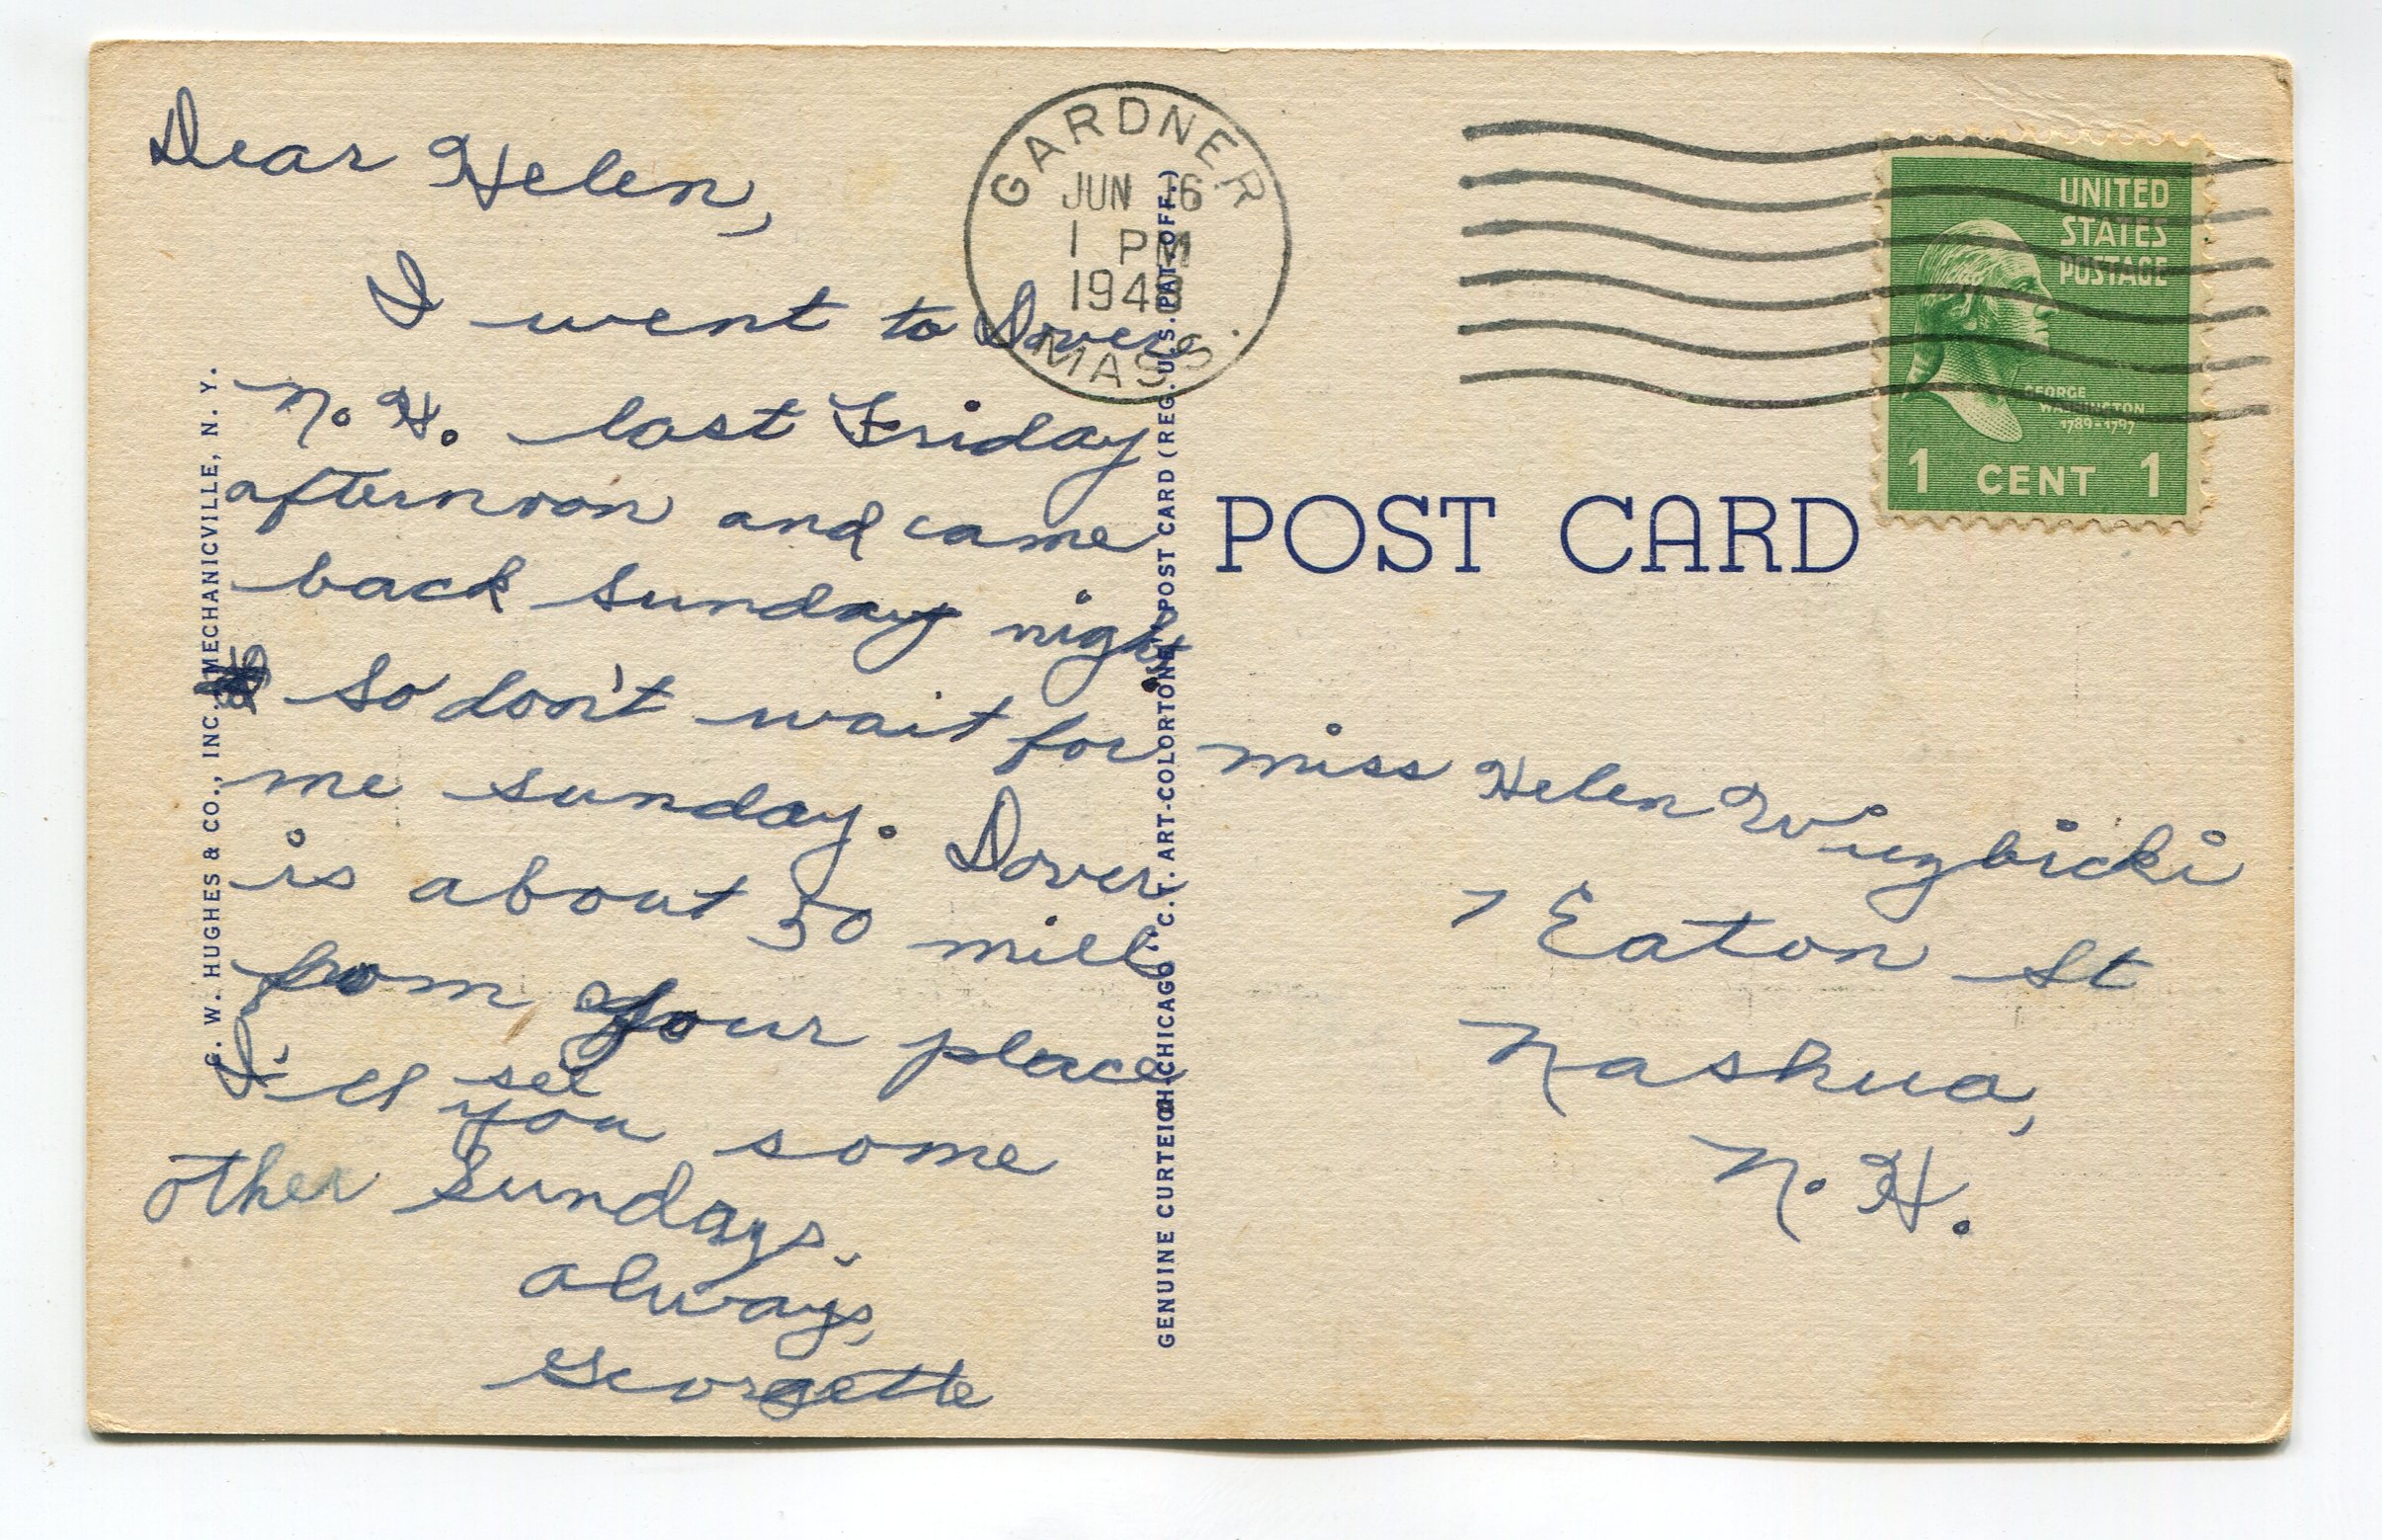 Dear Helen,
I went to Dover
N. H. last Friday
afternoon and came
back Sunday night
So don't wait for
me Sunday. Dover
is about 50 mile
from your place
I'll see
you some
other Sundays.
always,
Georgette
GARDNER
JUN 16
1 PM
MASS.
UNITED
STATES
POSTAGE
GEORGE
WASHINGTON
1789-1797
1 CENT 1
POST CARD
Miss Helen
7 Eaton St
Nashua,
N. H.
C. W. HUGHES & CO., INC., MECHANICVILLE, N. Y.
GENUINE CURTEICH-CHICAGO "C.T. ART-COLORTONE" POST CARD (REG. U.S. PAT. OFF.)